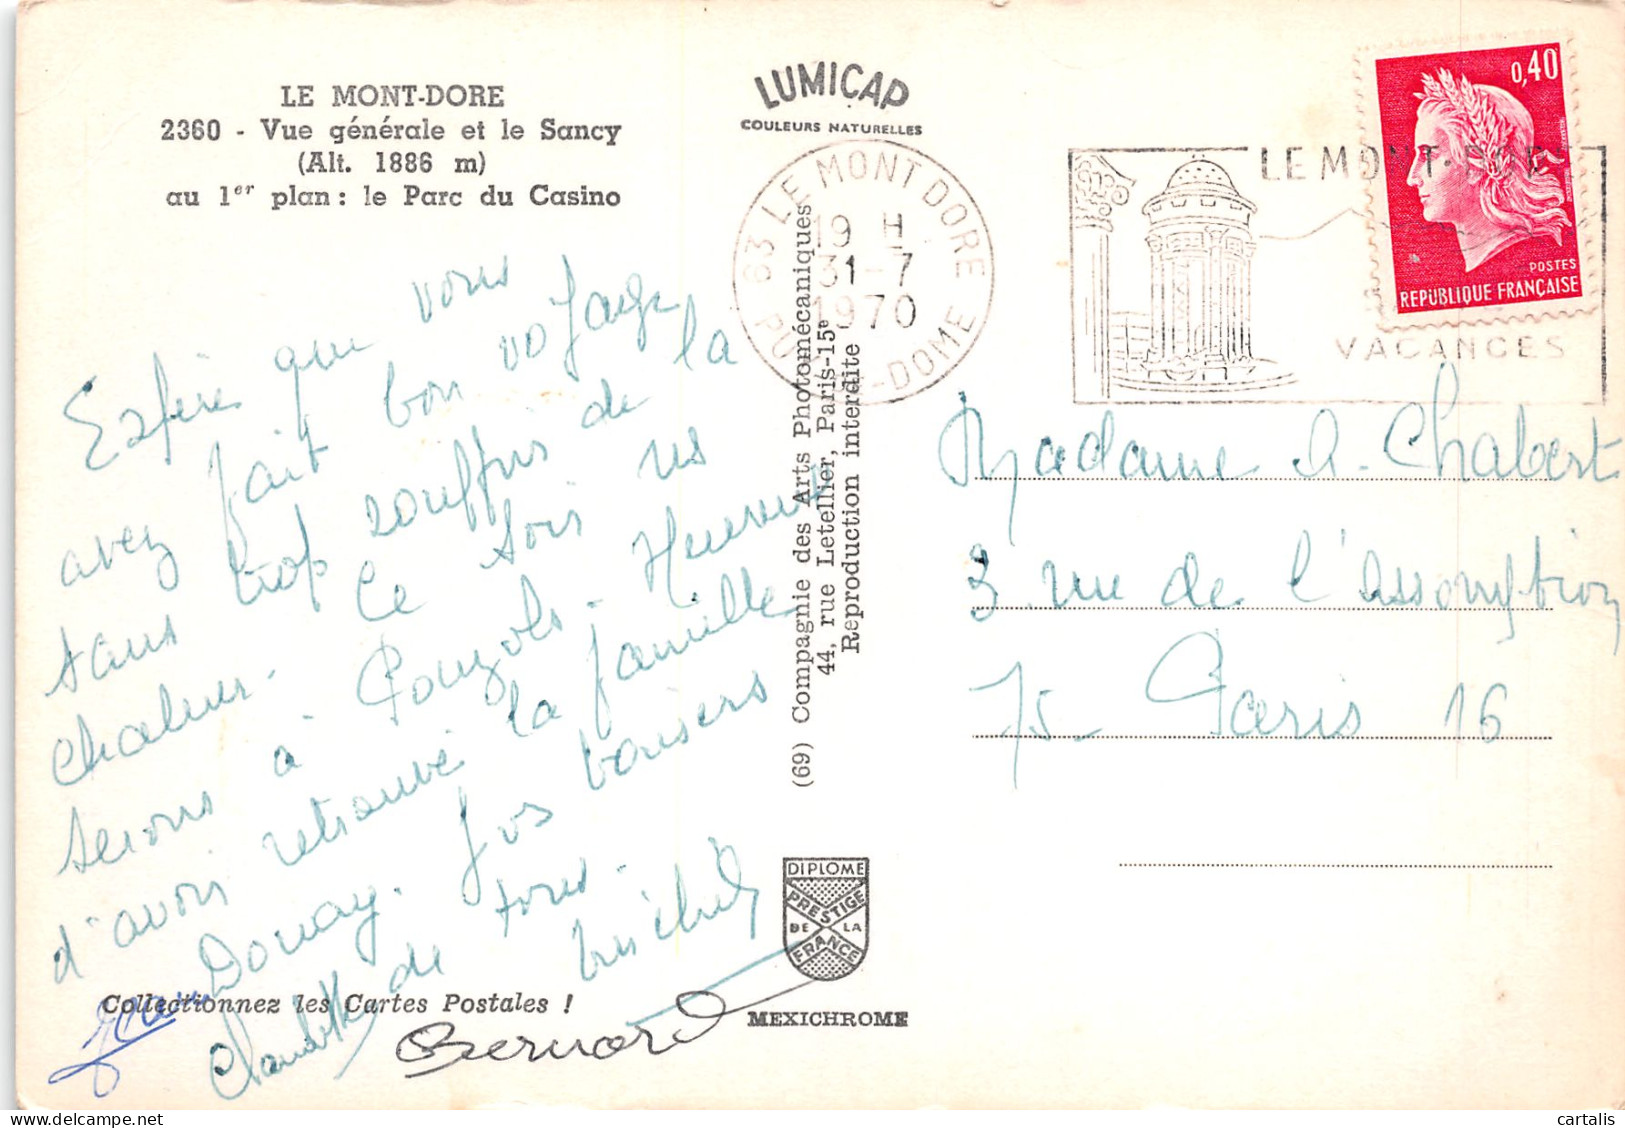 LE MONT-DORE
2360 - Vue générale et le Sancy
(Alt. 1886 m)
au 1er plan : le Parc du Casino
LUMICAP
COULEURS NATURELLES
63 LE MONT DORE
19 H
31-7
1970
PUY-DE-DOME
LE MONT-DORE
VACANCES
0,40
POSTES
REPUBLIQUE FRANÇAISE
que vous
avez fait bon voyage
sans trop souffrir de la
chaleur. Ce soir ns
serons à Pouzols. Heureux
d'avoir retrouvé la famille
Douay. Gros baisers
de tous.
Michel
Jean
Claudette
Bernard
(69) Compagnie des Arts Photomécaniques
44, rue Letellier, Paris-15e
Reproduction interdite
Madame A. Chabert
3 rue de l'assomption
75 - Paris 16
DIPLOME
PRESTIGE
DE LA
FRANCE
Collectionnez les Cartes Postales !
MEXICHROME
cartalis